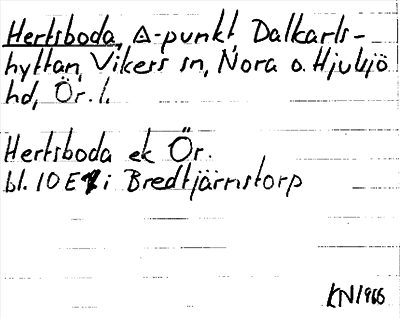 Hertsboda, Δ-punkt, Dalkarls-
hyttan, Vikers sn, Nora o. Hjulsjö
hd, Ör. l.
Hertsboda ek Ör.
bl. 10E i Bredtjärnstorp
KN1966